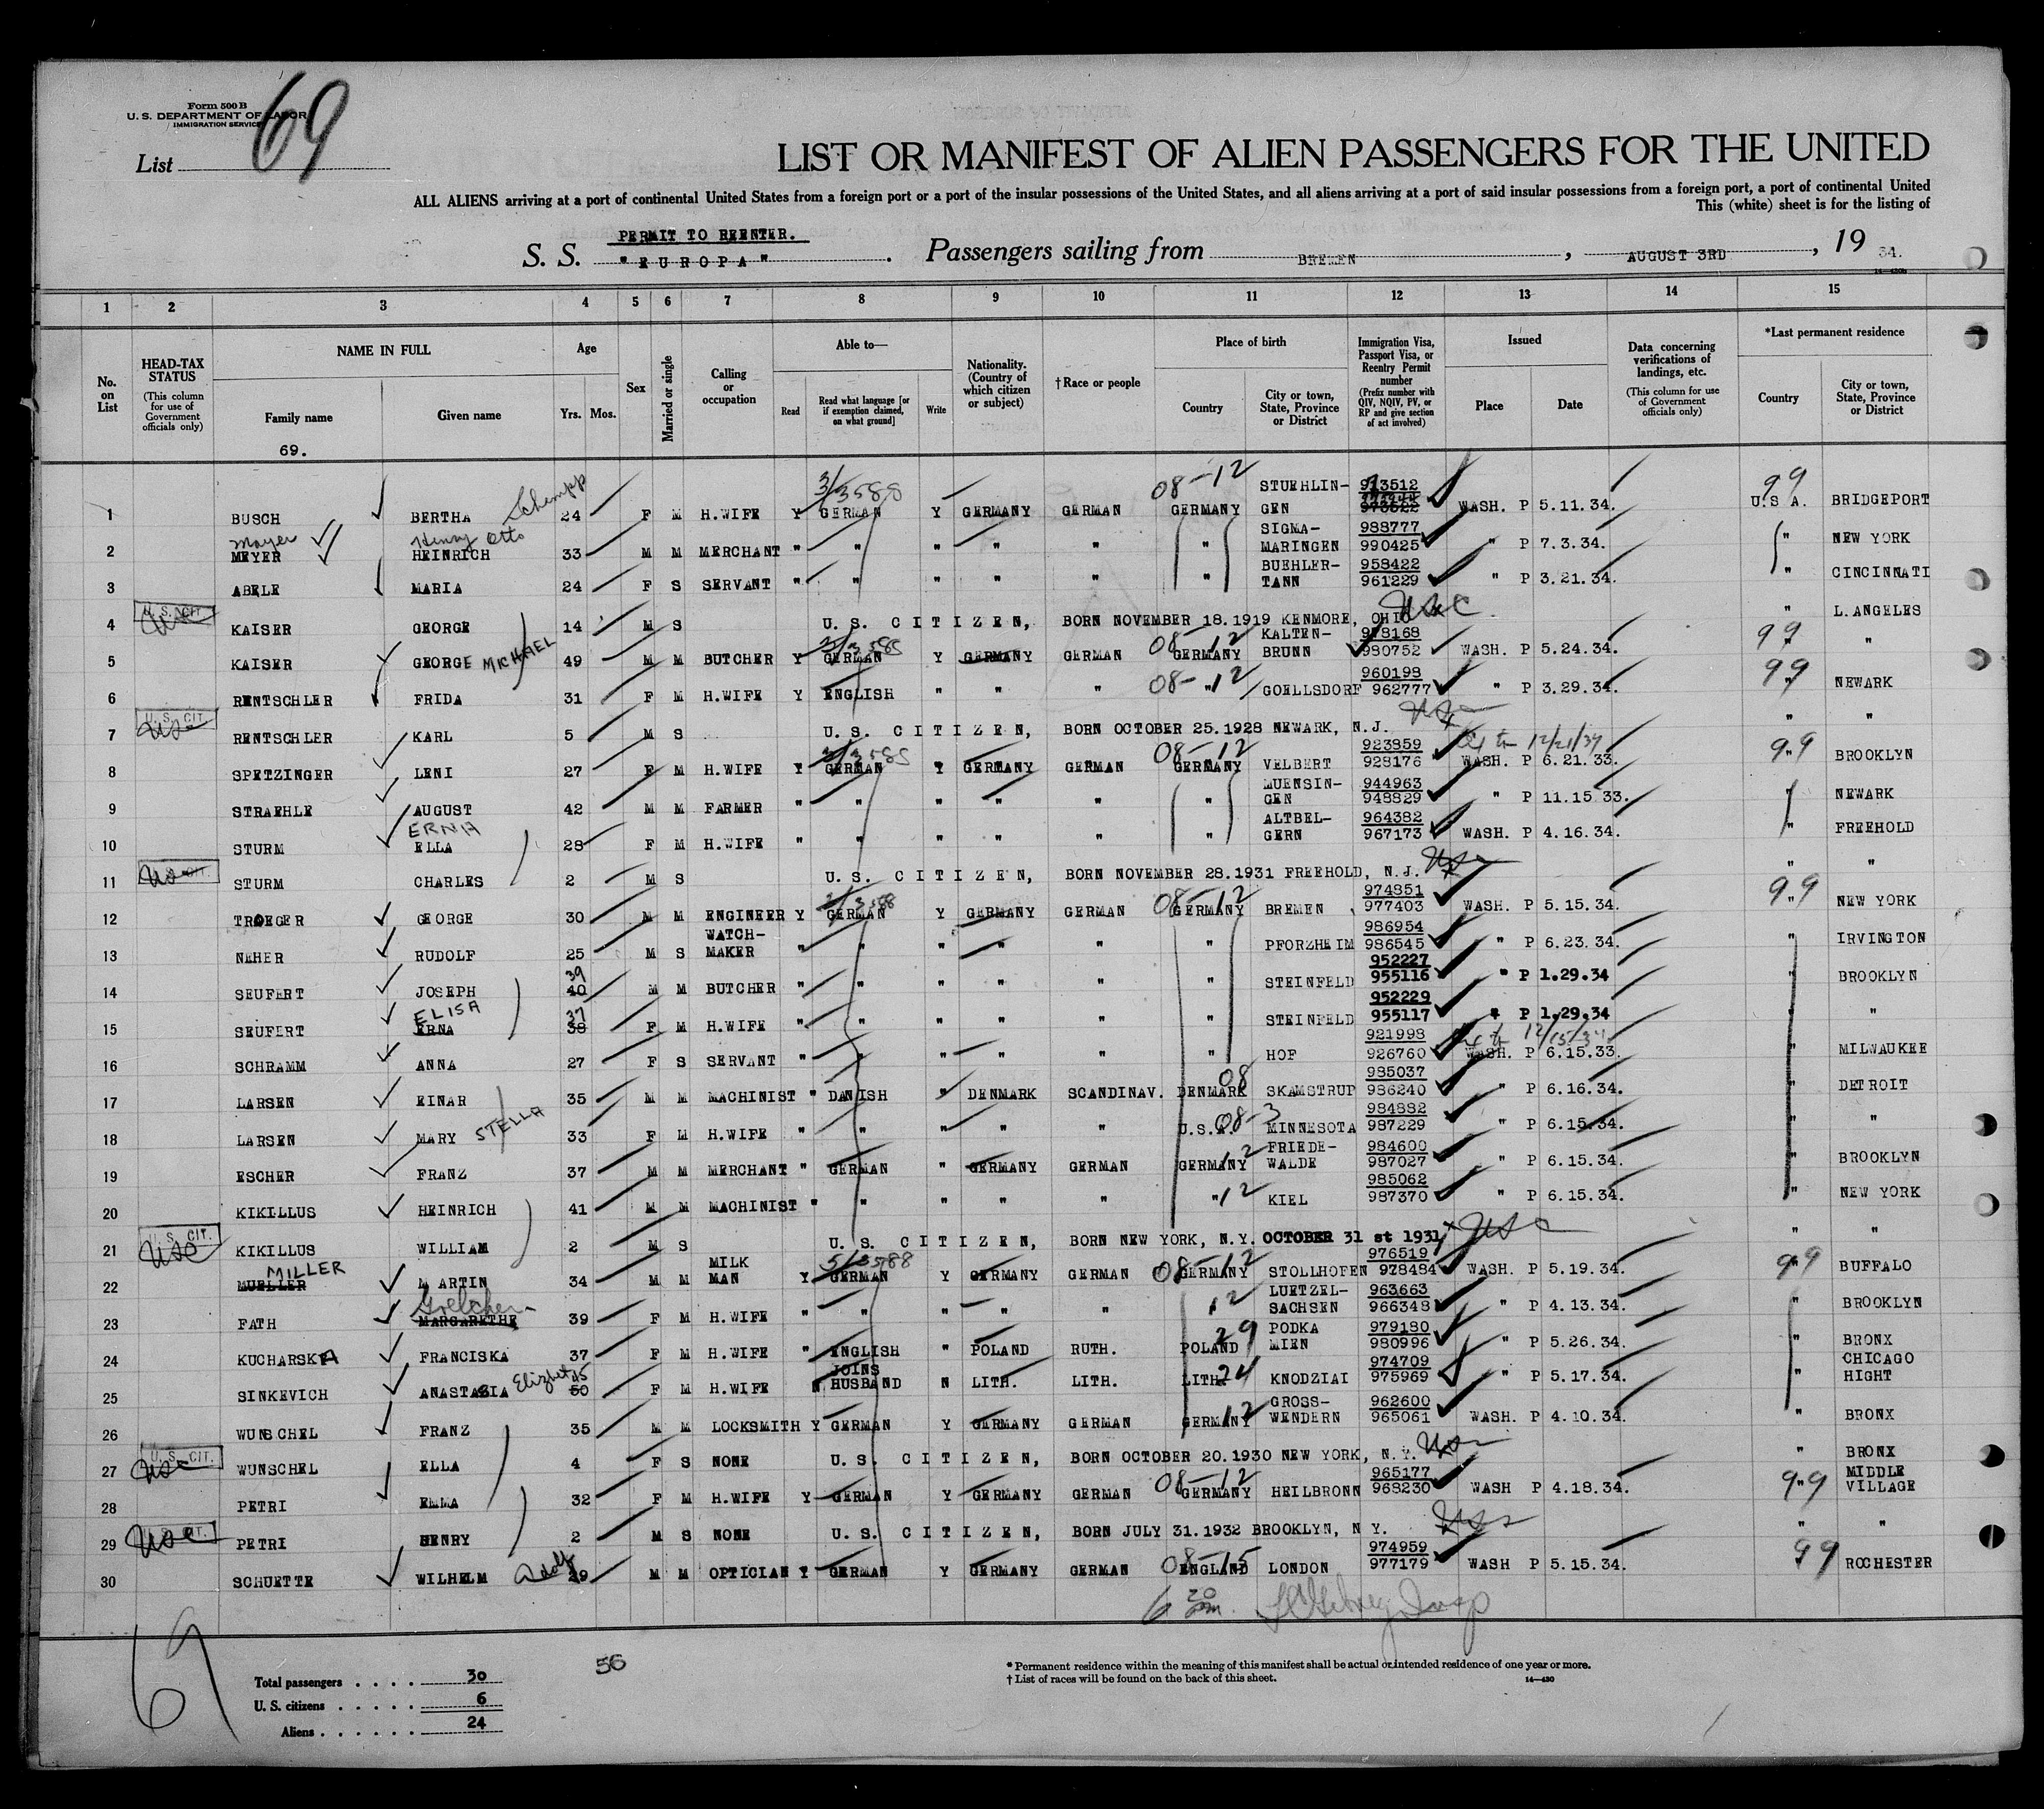 Form 500 B
U. S. DEPARTMENT OF LABOR
IMMIGRATION SERVICE
List 69
LIST OR MANIFEST OF ALIEN PASSENGERS FOR THE UNITED
ALL ALIENS arriving at a port of continental United States from a foreign port or a port of the insular possessions of the United States, and all aliens arriving at a port of said insular possessions from a foreign port, a port of continental United
This (white) sheet is for the listing of
PERMIT TO REENTER.
S. S. "EUROPA". Passengers sailing from BREMEN, AUGUST 3RD, 19 34.
14—430b
1 2 3 4 5 6 7 8 9 10 11 12 13 14 15
No. on List
HEAD-TAX STATUS (This column for use of Government officials only)
NAME IN FULL
Family name
Given name
69.
Age
Yrs. Mos.
Sex
Married or single
Calling or occupation
Able to—
Read
Read what language [or if exemption claimed, on what ground]
Write
Nationality. (Country of which citizen or subject)
†Race or people
Place of birth
Country
City or town, State, Province or District
Immigration Visa, Passport Visa, or Reentry Permit number (Prefix number with QIV, NQIV, PV, or RP and give section of act involved)
Issued
Place
Date
Data concerning verifications of landings, etc. (This column for use of Government officials only)
*Last permanent residence
Country
City or town, State, Province or District
1 BUSCH BERTHA Schempp 24 F M H.WIFE Y GERMAN 3/3588 Y GERMANY GERMAN 08-12 GERMANY STUEHLINGEN 973512 WASH. P 5.11.34. 99 U.S A. BRIDGEPORT
2 Mayer MEYER Henry Otto HEINRICH 33 M M MERCHANT " " " " " " SIGMA-MARINGEN 988777 990425 " P 7.3.34. " NEW YORK
3 ABELE MARIA 24 F S SERVANT " " " " " " BUEHLER-TANN 958422 961229 " P 3.21.34. " CINCINNATI
4 U. S. CIT. usc KAISER GEORGE 14 M S U. S. CITIZEN, BORN NOVEMBER 18.1919 KENMORE, OHIO usc " L.ANGELES
5 KAISER GEORGE MICHAEL 49 M M BUTCHER Y GERMAN 3/3588 Y GERMANY GERMAN 08-12 GERMANY KALTEN-BRUNN 978168 980752 WASH. P 5.24.34. 99 "
6 RENTSCHLER FRIDA 31 F M H.WIFE Y ENGLISH " " " 08-12 " GOELLSDORF 960198 962777 " P 3.29.34. 99 " NEWARK
7 U. S. CIT. usc RENTSCHLER KARL 5 M S U. S. CITIZEN, BORN OCTOBER 25.1928 NEWARK, N.J. " "
8 SPETZINGER LENI 27 F M H.WIFE Y GERMAN 3/3588 Y GERMANY GERMAN 08-12 GERMANY VELBERT 923859 928176 WASH. P 6.21.33. 12/21/34 99 " BROOKLYN
9 STRAEHLE AUGUST 42 M M FARMER " " " " " " MUENSIN-GEN 944963 948829 " P 11.15.33. " NEWARK
10 STURM ERNA ELLA 28 F M H.WIFE " " " " " " ALTBEL-GERN 964382 967173 WASH. P 4.16.34. " FREEHOLD
11 usc STURM CHARLES 2 M S U. S. CITIZEN, BORN NOVEMBER 28.1931 FREEHOLD, N.J. " "
12 TROEGER GEORGE 30 M M ENGINEER Y GERMAN 3/3588 Y GERMANY GERMAN 08-12 GERMANY BREMEN 974851 977403 WASH. P 5.15.34. 99 " NEW YORK
13 NEHER RUDOLF 25 M S WATCH-MAKER " " " " " " PFORZHEIM 986954 986545 " P 6.23.34. " IRVINGTON
14 SEUFERT JOSEPH 39 40 M M BUTCHER " " " " " " STEINFELD 952227 955116 " P 1.29.34 " BROOKLYN
15 SEUFERT ELISA ERNA 37 38 F M H.WIFE " " " " " " STEINFELD 952229 955117 " P 1.29.34 " "
16 SCHRAMM ANNA 27 F S SERVANT " " " " " " HOF 921998 926760 WASH. P 6.15.33. 12/15/34 " MILWAUKEE
17 LARSEN EINAR 35 M M MACHINIST " DANISH " DENMARK SCANDINAV. 08 DENMARK SKAMSTRUP 985037 986240 " P 6.16.34. " DETROIT
18 LARSEN MARY STELLA 33 F M H.WIFE " " " " " 08-3 U.S.A. MINNESOTA 984882 987229 " P 6.15.34. " "
19 ESCHER FRANZ 37 M M MERCHANT " GERMAN " GERMANY GERMAN 12 GERMANY FRIEDE-WALDE 984600 987027 " P 6.15.34. " BROOKLYN
20 KIKILLUS HEINRICH 41 M M MACHINIST " " " " " " 12 KIEL 985062 987370 " P 6.15.34. " NEW YORK
21 U. S. CIT. usc KIKILLUS WILLIAM 2 M S U. S. CITIZEN, BORN NEW YORK, N.Y. OCTOBER 31 st 1931, usc " "
22 MILLER MUELLER MARTIN 34 M M MILK MAN Y GERMAN 5/3588 Y GERMANY GERMAN 08-12 GERMANY STOLLHOFEN 976519 978484 WASH. P 5.19.34. 99 " BUFFALO
23 FATH Gretchen MARGARETHE 39 F M H.WIFE " " " " " " 12 LUETZEL-SACHSEN 963663 966348 " P 4.13.34. " BROOKLYN
24 KUCHARSKA FRANCISKA 37 F M H.WIFE " ENGLISH " POLAND RUTH. POLAND 29 PODKA MIEN 979180 980996 " P 5.26.34. " BRONX
25 SINKEVICH ANASTASIA Elizbet 45 50 F M H.WIFE N JOINS HUSBAND N LITH. LITH. LITH. 24 KNODZIAI 974709 975969 " P 5.17.34. " CHICAGO HIGHT
26 WUNSCHEL FRANZ 35 M M LOCKSMITH Y GERMAN Y GERMANY GERMAN 12 GERMANY GROSS-WENDERN 962600 965061 WASH. P 4.10.34. " BRONX
27 U. S. CIT. usc WUNSCHEL ELLA 4 F S NONE U. S. CITIZEN, BORN OCTOBER 20.1930 NEW YORK, N.Y. " BRONX
28 PETRI EMMA 32 F M H.WIFE Y GERMAN Y GERMANY GERMAN 08-12 GERMANY HEILBRONN 965177 968230 WASH P 4.18.34. 99 " MIDDLE VILLAGE
29 usc PETRI HENRY 2 M S NONE U. S. CITIZEN, BORN JULY 31.1932 BROOKLYN, N Y. " "
30 SCHUETTE WILHELM Adolf 29 M M OPTICIAN Y GERMAN Y GERMANY GERMAN 08-15 ENGLAND LONDON 974959 977179 WASH P 5.15.34. 99 ROCHESTER
69
56
Total passengers . . . . 30
U. S. citizens . . . . . 6
Aliens . . . . . . 24
* Permanent residence within the meaning of this manifest shall be actual or intended residence of one year or more.
† List of races will be found on the back of this sheet.
14—430